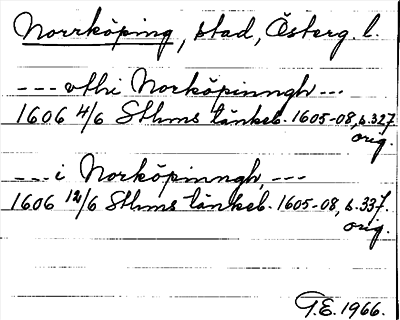 Norrköping, stad, Österg. l.
--- vthi Norköpinngh ---
1606 4/6 Sthms tänkeb. 1605-08, s. 327
orig.
--- i Norköpinngh, ---
1606 12/6 Sthms tänkeb. 1605-08, s. 337.
orig.
G.E. 1966.